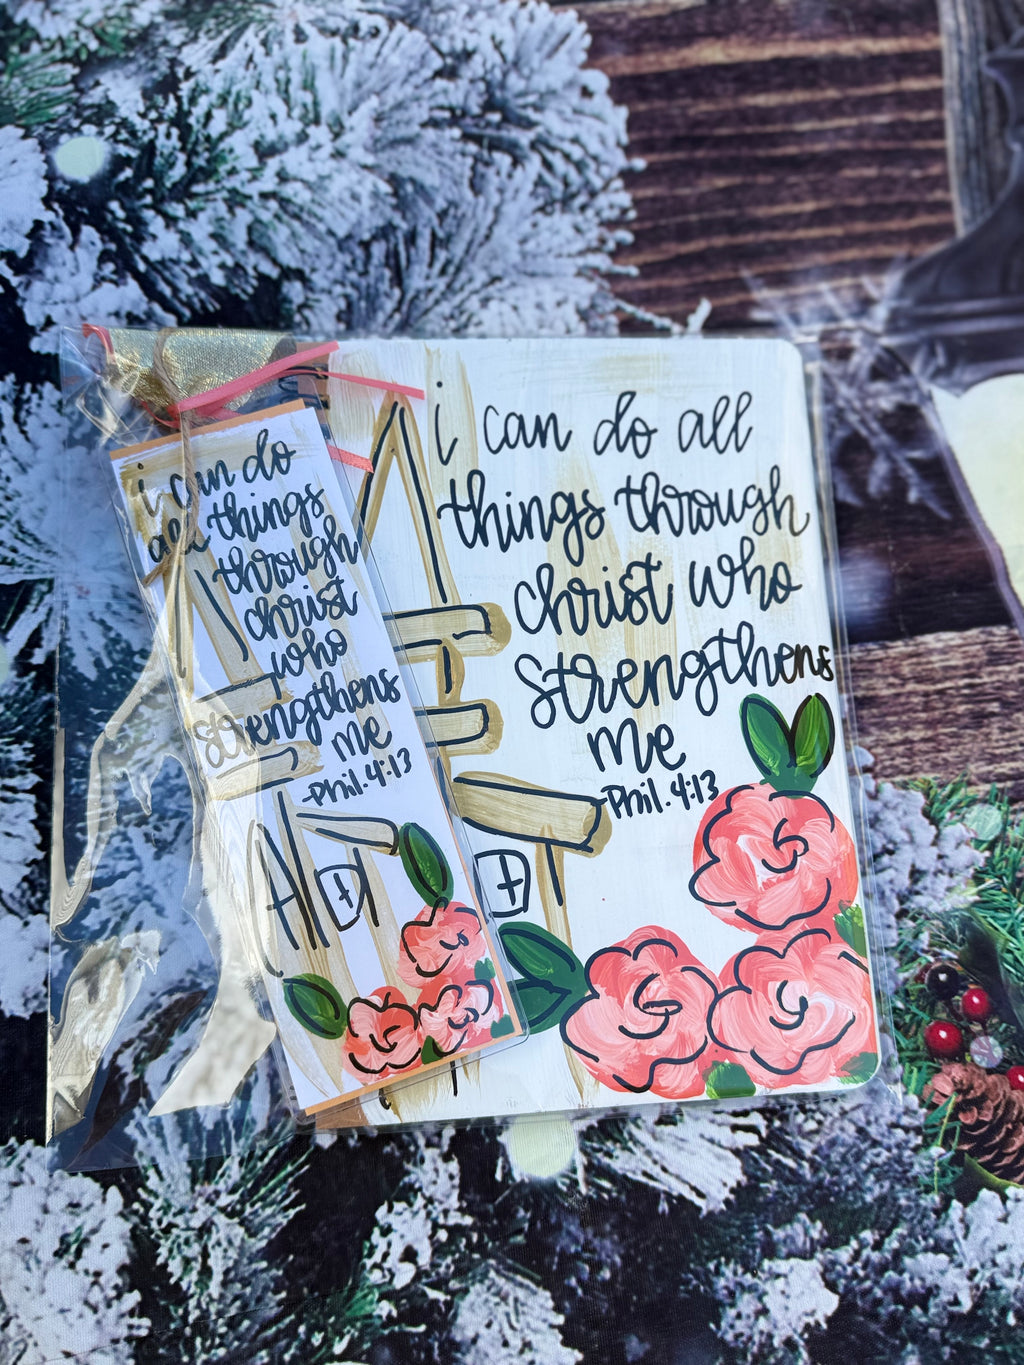 i can do
all things
through
christ
who
strengthens
me
-Phil. 4:13
i can do all
things through
christ who
strengthens
me
-Phil. 4:13